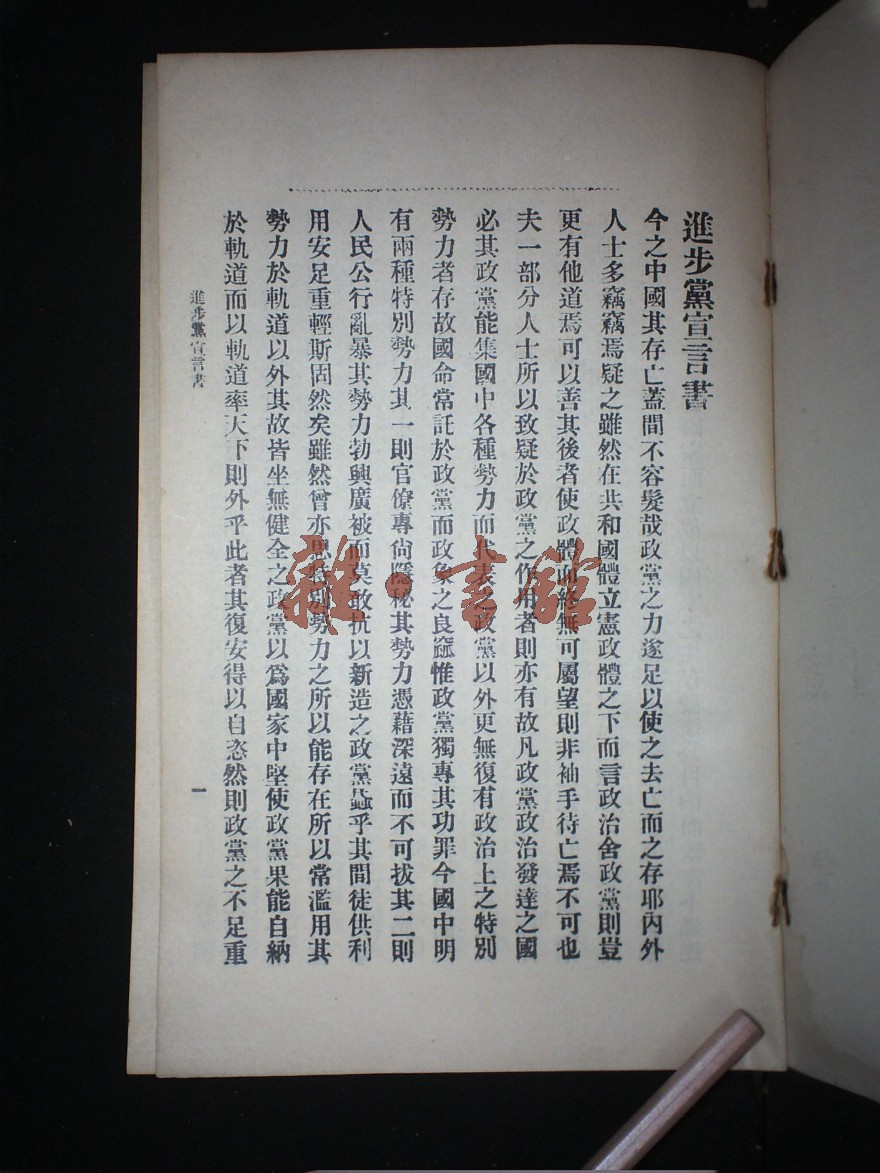 進步黨宣言書
今之中國其存亡蓋間不容髮哉政黨之力遂足以使之去亡而之存耶內外
人士多竊竊焉疑之雖然在共和國體立憲政體之下而言政治舍政黨則豈
更有他道焉可以善其後者使政體而終無可屬望則非袖手待亡焉不可也
夫一部分人士所以致疑於政黨之作用者則亦有故凡政黨政治發達之國
必其政黨能集國中各種勢力而代表之政黨以外更無復有政治上之特別
勢力者存故國命常託於政黨而政象之良窳惟政黨獨專其功罪今國中明
有兩種特別勢力其一則官僚專尙隱秘其勢力憑藉深遠而不可拔其二則
人民公行亂暴其勢力勃興廣被而莫敢抗以新造之政黨蝨乎其間徒供利
用安足重輕斯固然矣雖然曾亦思特別勢力之所以能存在所以常濫用其
勢力於軌道以外其故皆坐無健全之政黨以爲國家中堅使政黨果能自納
於軌道而以軌道率天下則外乎此者其復安得以自恣然則政黨之不足重
進步黨宣言書
一
雜·書館